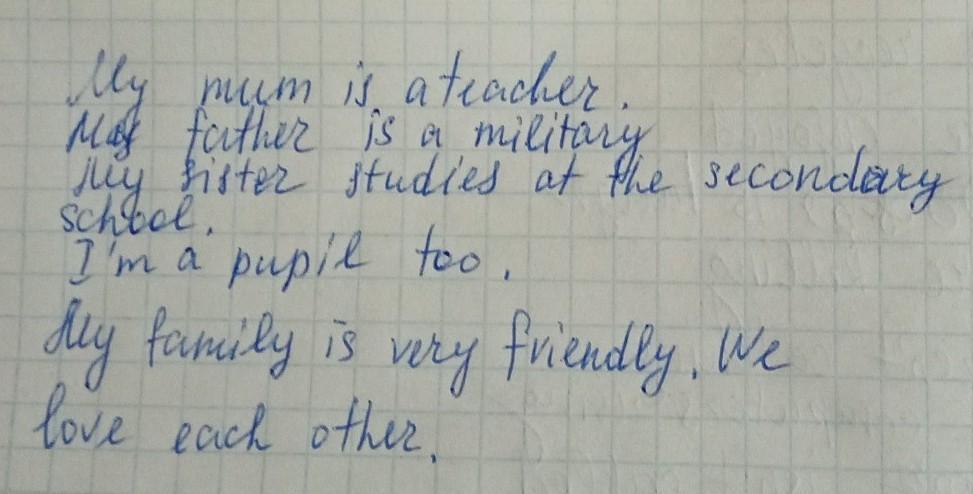 My mum is a teacher.
My father is a military
My sister studies at the secondary
school.
I'm a pupil too.
My family is very friendly. We
love each other.